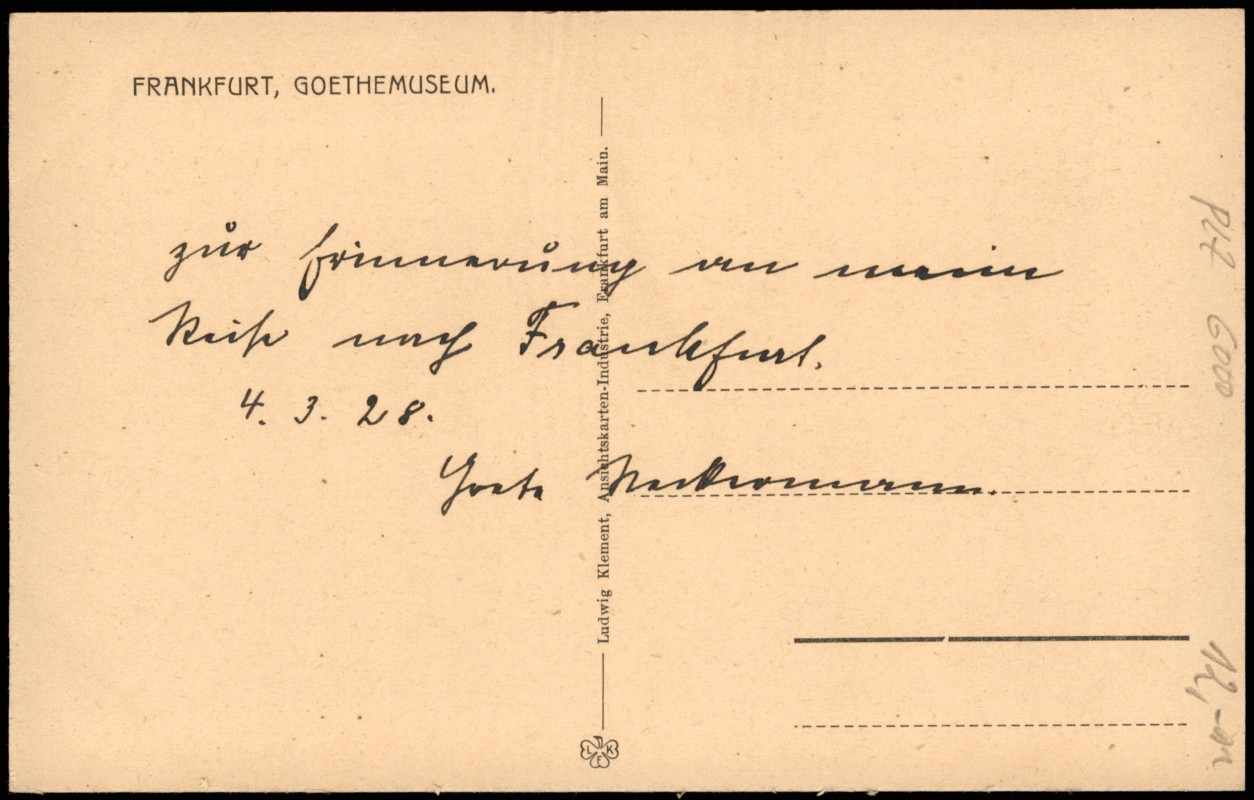 FRANKFURT, GOETHEMUSEUM.
zur Erinnerung an meine
Reise nach Frankfurt.
4. 3. 28.
Grete Neckermann.
Ludwig Klement, Ansichtskarten-Industrie, Frankfurt am Main.
L K F
PLZ 6000
12,-